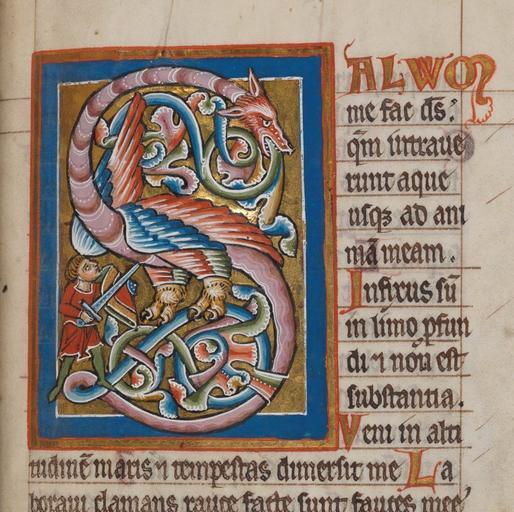 SALWO
me fac ds:
qm intraue
runt aque
usq; ad ani
mā meam.
Infixus sū
in limo pfun
di ⁊ nō est
substantia.
Veni in alti
tudinē maris ⁊ tempestas dimersit me La
boraui clamans rauce facte sunt fauces mee